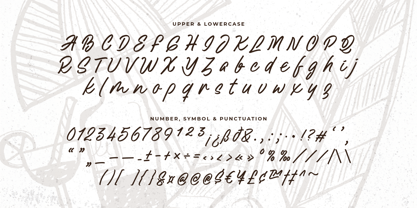 UPPER & LOWERCASE
A B C D E F G H I J K L M N O P Q
R S T U V W X Y Z a b c d e f g h i j
k l m n o p q r s t u v w x y z
NUMBER, SYMBOL & PUNCTUATION
0 1 2 3 4 5 6 7 8 9 1 2 3 ¡ ¿ ß & . , : ; . · ! ? # ‘ ’ ,
“ ” „ _ – — - ± - + × ÷ = ‹ › < > « » ° % ‰ / / / | \ \
( ) ( ) ( ) § ¤ @ @ @ $ € ¥ £ ¢ ™ † # ^ ~